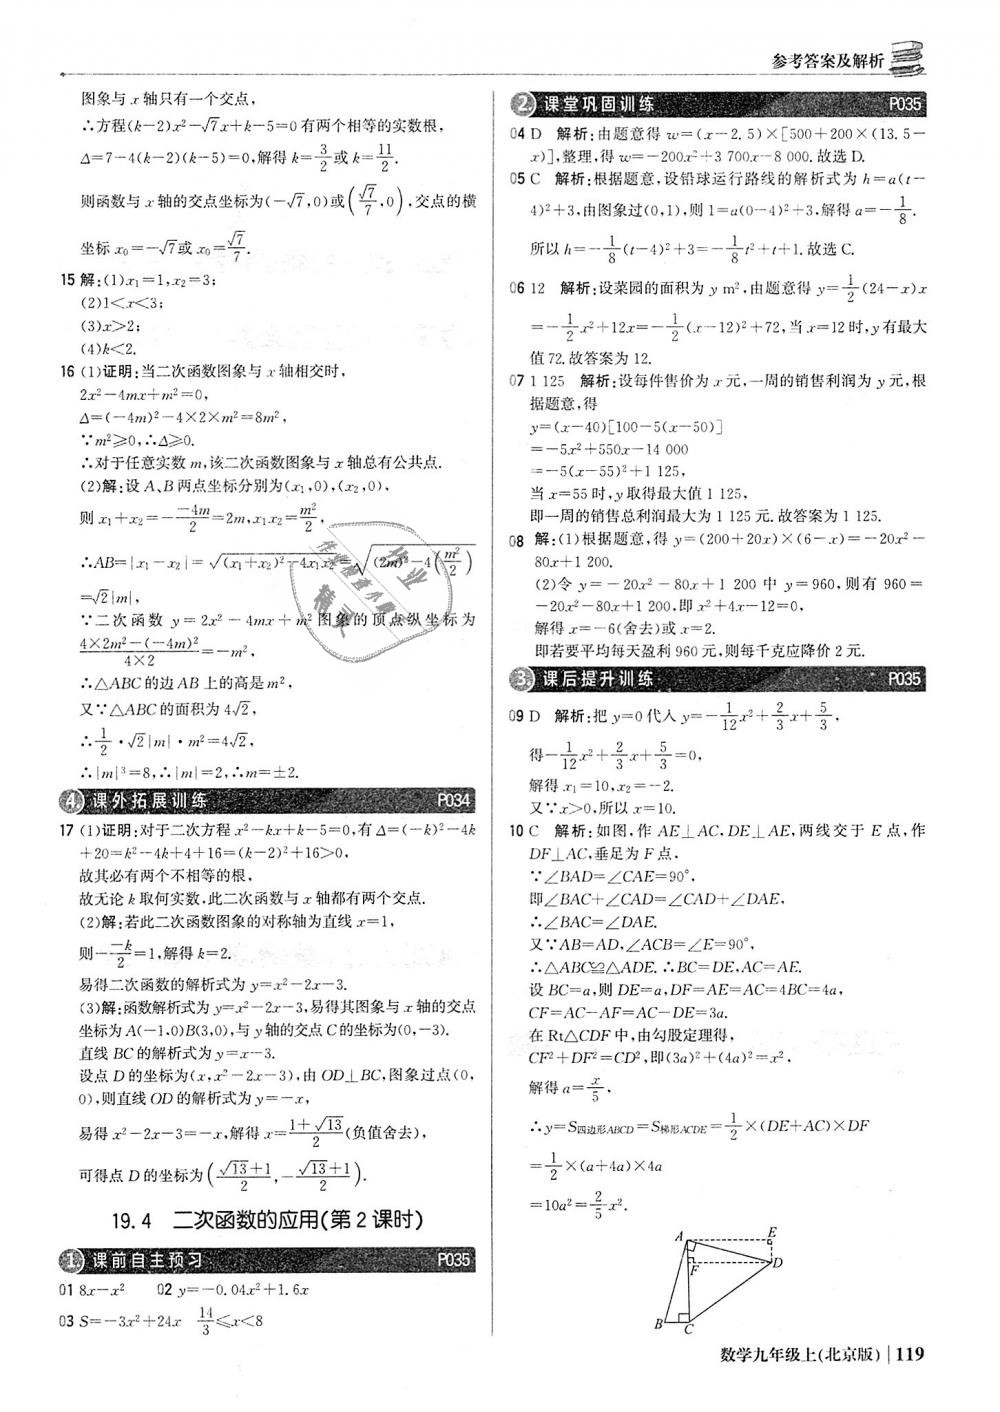 参考答案及解析
图象与 x 轴只有一个交点,
∴方程(k−2)x²−√7x+k−5=0 有两个相等的实数根,
Δ=7−4(k−2)(k−5)=0,解得 k=3/2或 k=11/2.
则函数与 x 轴的交点坐标为(−√7,0)或(√7/7,0),交点的横
坐标 x₀=−√7或 x₀=√7/7.
15 解:(1)x₁=1,x₂=3;
(2)1<x<3;
(3)x>2;
(4)k<2.
16 (1)证明:当二次函数图象与 x 轴相交时,
2x²−4mx+m²=0,
Δ=(−4m)²−4×2×m²=8m²,
∵m²≥0,∴Δ≥0.
∴对于任意实数 m,该二次函数图象与 x 轴总有公共点.
(2)解:设 A、B 两点坐标分别为(x₁,0),(x₂,0),
则 x₁+x₂=−−4m/2=2m,x₁x₂=m²/2,
∴AB=|x₁−x₂|=√(x₁+x₂)²−4x₁x₂=√(2m)²−4(m²/2)
=√2|m|,
∵二次函数 y=2x²−4mx+m²图象的顶点纵坐标为
4×2m²−(−4m)²/4×2=−m²,
∴△ABC 的边 AB 上的高是 m²,
又∵△ABC 的面积为 4√2,
∴1/2·√2|m|·m²=4√2,
∴|m|³=8,∴|m|=2,∴m=±2.
4. 课外拓展训练 P034
17 (1)证明:对于二次方程 x²−kx+k−5=0,有 Δ=(−k)²−4k
+20=k²−4k+4+16=(k−2)²+16>0,
故其必有两个不相等的根,
故无论 k 取何实数,此二次函数与 x 轴都有两个交点.
(2)解:若此二次函数图象的对称轴为直线 x=1,
则−−k/2=1,解得 k=2.
易得二次函数的解析式为 y=x²−2x−3.
(3)解:函数解析式为 y=x²−2x−3,易得其图象与 x 轴的交点
坐标为 A(−1,0)B(3,0),与 y 轴的交点 C 的坐标为(0,−3).
直线 BC 的解析式为 y=x−3.
设点 D 的坐标为(x,x²−2x−3),由 OD⊥BC,图象过点(0,
0),则直线 OD 的解析式为 y=−x,
易得 x²−2x−3=−x,解得 x=1+√13/2(负值舍去),
可得点 D 的坐标为(√13+1/2,−√13+1/2).
19.4 二次函数的应用(第 2 课时)
1. 课前自主预习 P035
01 8x−x² 02 y=−0.04x²+1.6x
03 S=−3x²+24x 14/3≤x<8
2. 课堂巩固训练 P035
04 D 解析:由题意得 w=(x−2.5)×[500+200×(13.5−
x)],整理,得 w=−200x²+3 700x−8 000.故选 D.
05 C 解析:根据题意,设铅球运行路线的解析式为 h=a(t−
4)²+3,由图象过(0,1),则 1=a(0−4)²+3,解得 a=−1/8.
所以 h=−1/8(t−4)²+3=−1/8t²+t+1.故选 C.
06 12 解析:设菜园的面积为 y m²,由题意得 y=1/2(24−x)x
=−1/2x²+12x=−1/2(x−12)²+72,当 x=12 时,y 有最大
值 72.故答案为 12.
07 1 125 解析:设每件售价为 x 元,一周的销售利润为 y 元,根
据题意,得
y=(x−40)[100−5(x−50)]
=−5x²+550x−14 000
=−5(x−55)²+1 125,
当 x=55 时,y 取得最大值 1 125,
即一周的销售总利润最大为 1 125 元.故答案为 1 125.
08 解:(1)根据题意,得 y=(200+20x)×(6−x)=−20x²−
80x+1 200.
(2)令 y=−20x²−80x+1 200 中 y=960,则有 960=
−20x²−80x+1 200,即 x²+4x−12=0,
解得 x=−6(舍去)或 x=2.
即若要平均每天盈利 960 元,则每千克应降价 2 元.
3. 课后提升训练 P035
09 D 解析:把 y=0 代入 y=−1/12x²+2/3x+5/3,
得−1/12x²+2/3x+5/3=0,
解得 x₁=10,x₂=−2.
又∵x>0,所以 x=10.
10 C 解析:如图,作 AE⊥AC,DE⊥AE,两线交于 E 点,作
DF⊥AC,垂足为 F 点,
∵∠BAD=∠CAE=90°,
即∠BAC+∠CAD=∠CAD+∠DAE,
∴∠BAC=∠DAE.
又∵AB=AD,∠ACB=∠E=90°,
∴△ABC≌△ADE.∴BC=DE,AC=AE.
设 BC=a,则 DE=a,DF=AE=AC=4BC=4a,
CF=AC−AF=AC−DE=3a.
在 Rt△CDF 中,由勾股定理得,
CF²+DF²=CD²,即(3a)²+(4a)²=x²,
解得 a=x/5,
∴y=S四边形ABCD=S梯形ACDE=1/2×(DE+AC)×DF
=1/2×(a+4a)×4a
=10a²=2/5x².
A E
F D
B C
数学九年级上(北京版) 119
作业
作业检查小助
精灵